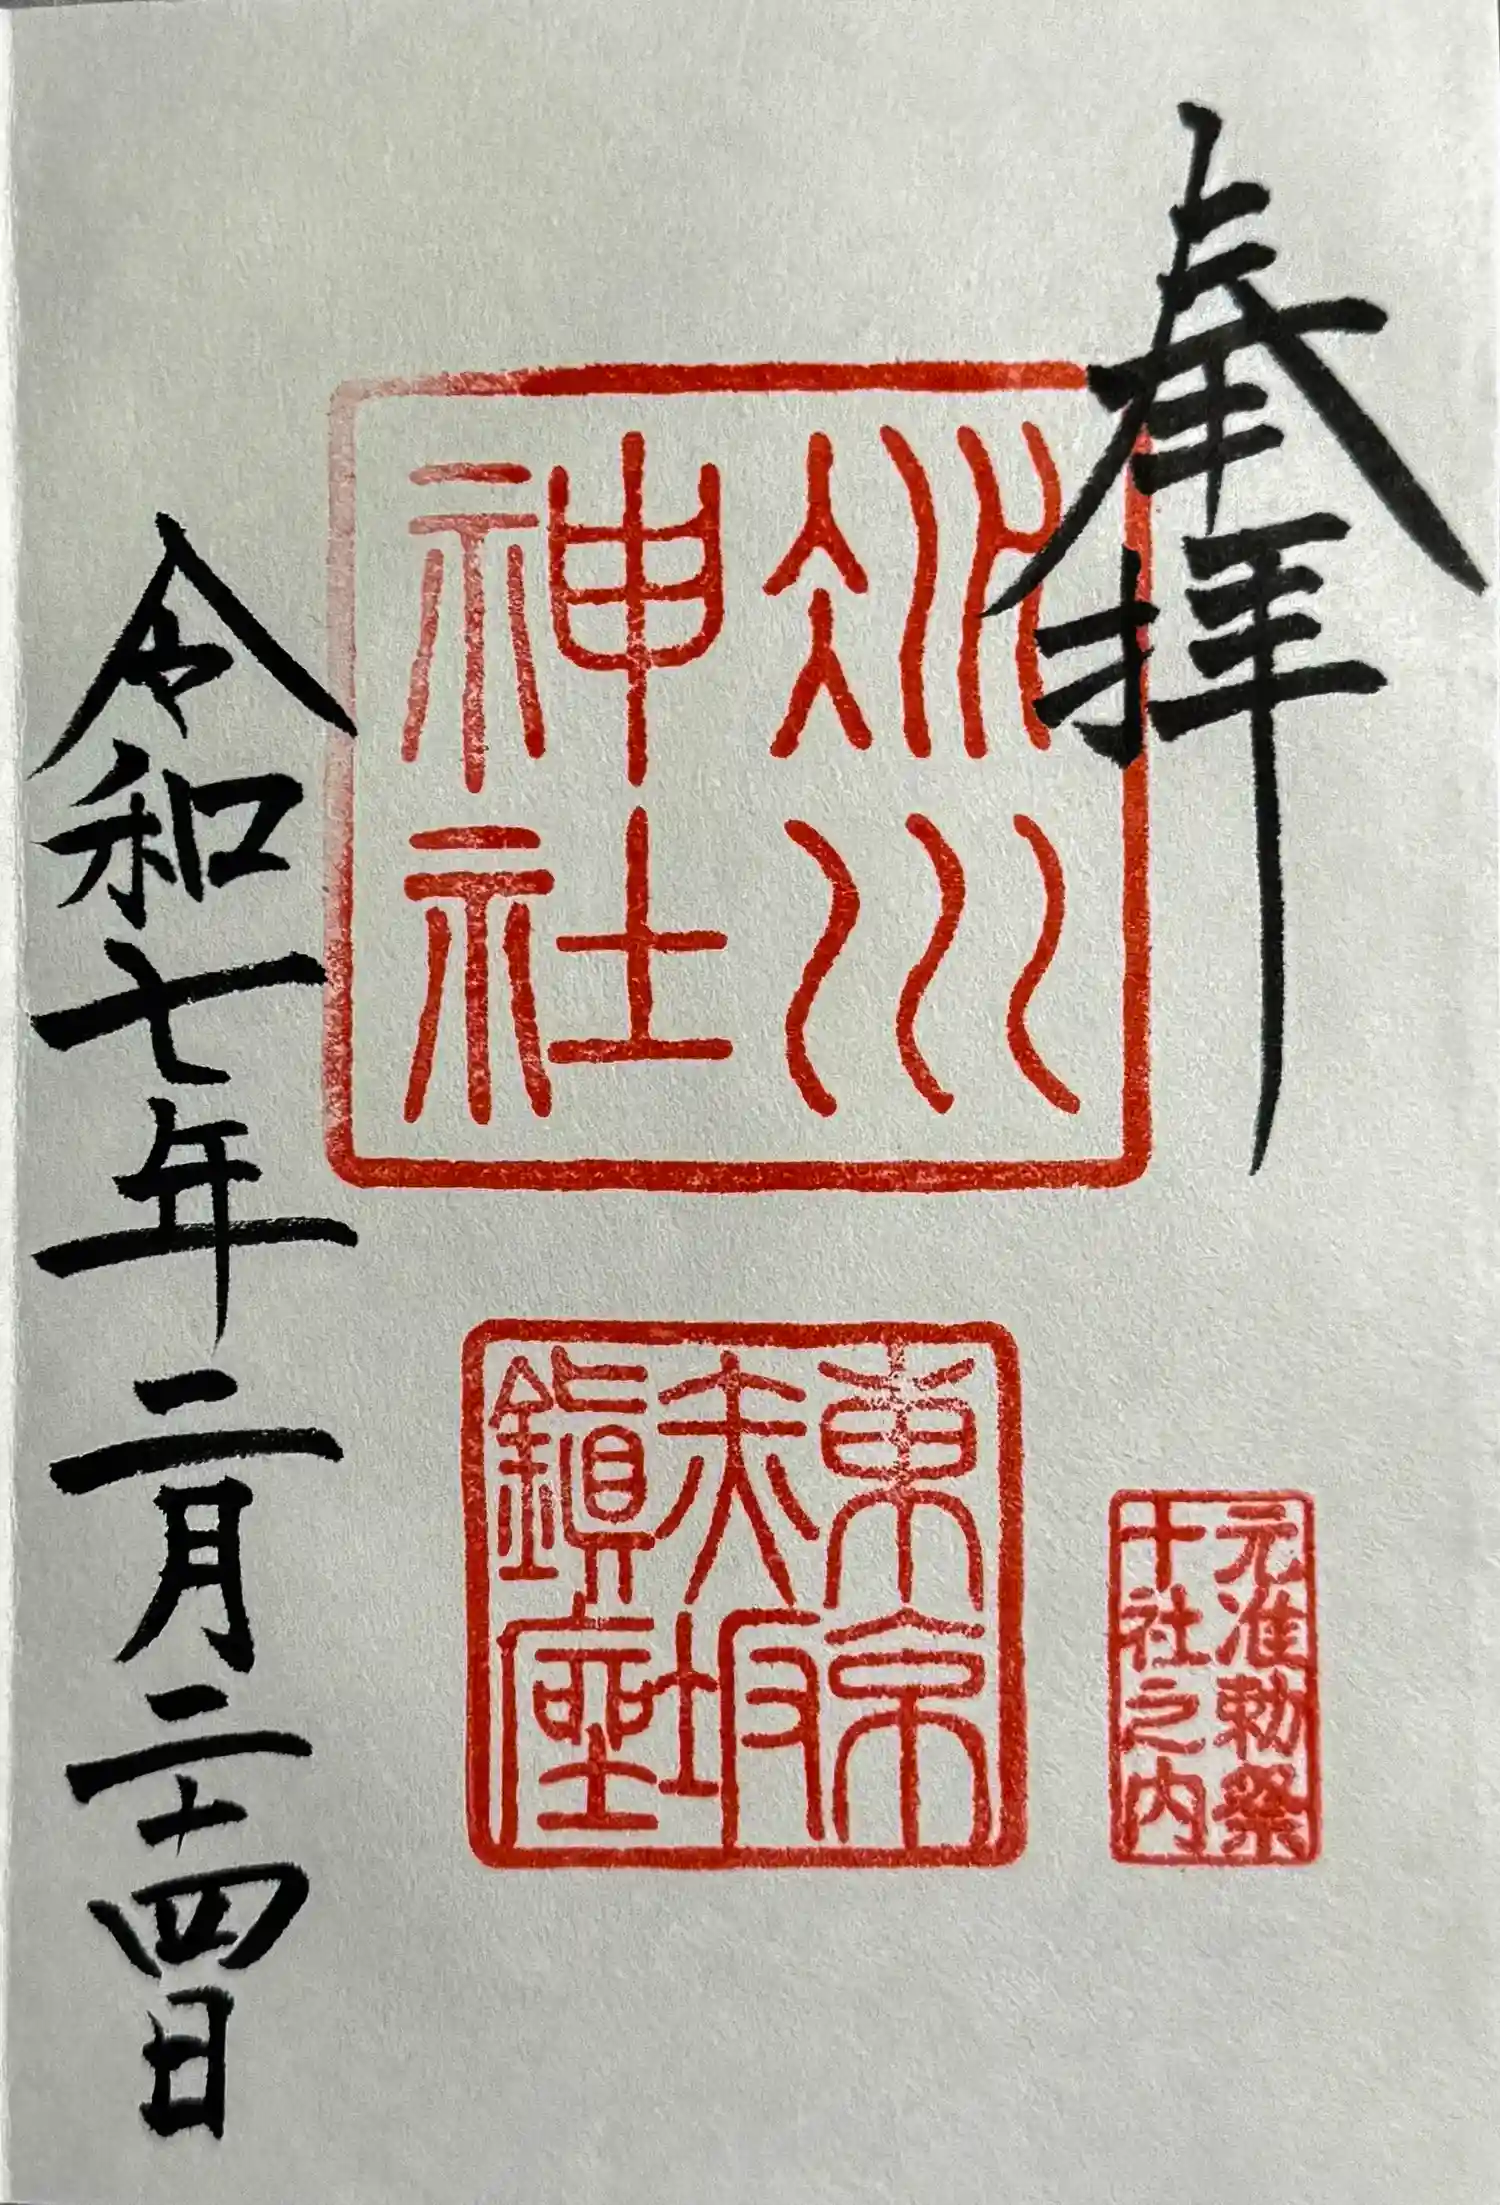 奉拝
氷川
神社
元准勅祭
十社之内
東京
赤坂
鎮座
令和七年二月二十四日